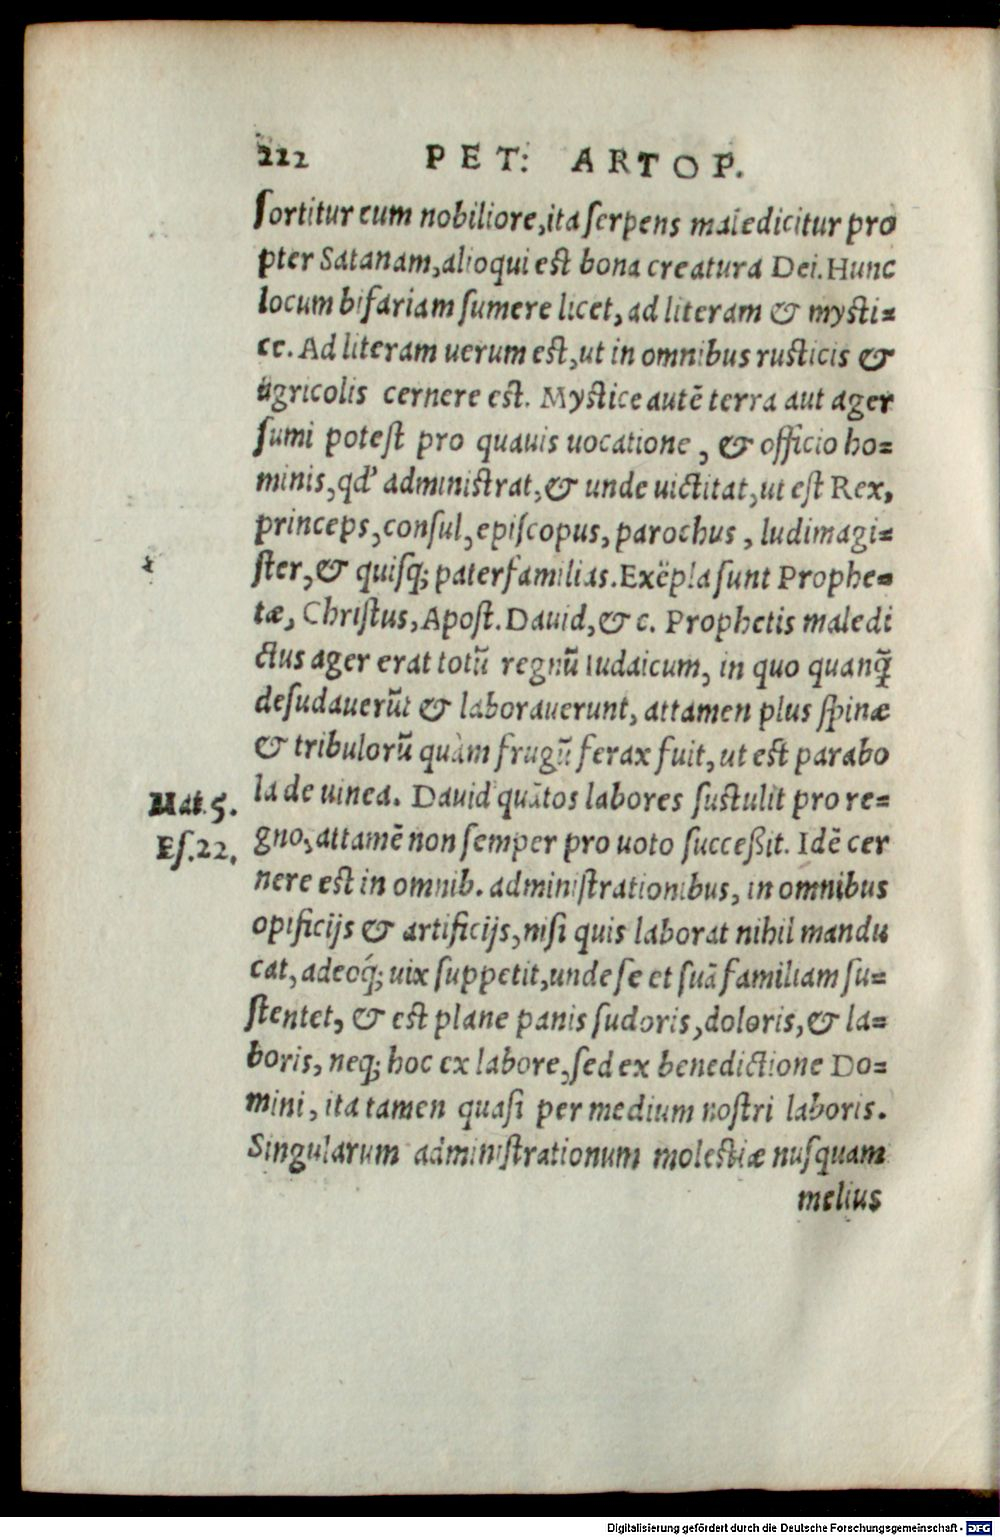 222 PET: ARTOP.
sortitur cum nobiliore, ita serpens maledicitur pro
pter Satanam, alioqui est bona creatura Dei. Hunc
locum bifariam sumere licet, ad literam & mysti=
ce. Ad literam uerum est, ut in omnibus rusticis &
agricolis cernere est. Mystice autē terra aut ager
sumi potest pro quauis uocatione, & officio ho=
minis, qd' administrat, & unde uictitat, ut est Rex,
princeps, consul, episcopus, parochus, ludimagi=
ster, & quisq; paterfamilias. Exēpla sunt Prophe=
tæ, Christus, Apost. Dauid, &c. Prophetis maledi
ctus ager erat totū regnū Iudaicum, in quo quanq̃
desudauerūt & laborauerunt, attamen plus spinæ
& tribulorū quàm frugū ferax fuit, ut est parabo
la de uinea. Dauid quātos labores sustulit pro re=
Mat. 5.
gno, attamē non semper pro uoto succeßit. Idē cer
Es. 22.
nere est in omnib. administrationibus, in omnibus
opificijs & artificijs, nisi quis laborat nihil mandu
cat, adeoq́; uix suppetit, unde se et suā familiam su=
stentet, & est plane panis sudoris, doloris, & la=
boris, neq; hoc ex labore, sed ex benedictione Do=
mini, ita tamen quasi per medium nostri laboris.
Singularum administrationum molestiæ nusquam
melius
Digitalisierung gefördert durch die Deutsche Forschungsgemeinschaft - DFG